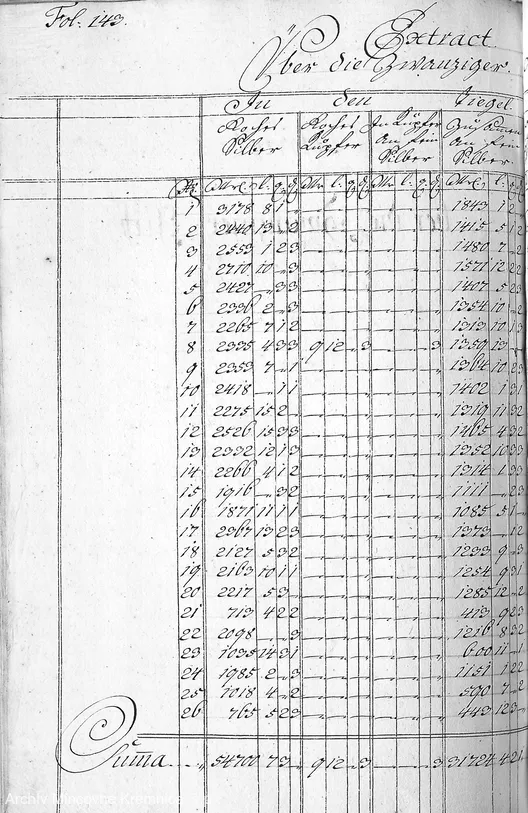 Fol: 143.
Extract
Über die Zwanziger.
In den Tiegel
Roches Silber Roches Kupfer In Kupfer An fein Silber Zusamen An fein Silber
No Mrk l. q. d. Mr. l. q. d. Mr. l. q. d. Mrk l. q.
1 3178 8 1 „ 1843 1
2 2440 13 „ 2 1415 5 1 2
3 2553 1 2 3 1480 7 „ 2
4 2710 10 „ 3 1571 12 2
5 2427 „ 3 3 1407 5 2 3
6 2336 2 „ 3 1354 10 „ 2
7 2265 7 1 2 1313 10 1 3
8 2335 4 3 3 9 12 „ 3 3 1359 13
9 2353 7 „ 1 1364 10 2 3
10 2418 „ 1 1 1402 1 3 1
11 2275 15 2 „ 1319 11 3 2
12 2526 15 3 3 1465 4 3 2
13 2332 12 1 3 1352 10 3 3
14 2266 4 1 2 1314 1 3 3
15 1916 „ 3 2 1111 „ 2 3
16 1871 11 1 1 1085 5 1 „
17 2367 13 2 3 1373 „ 1 2
18 2127 5 3 2 1233 9 „ 3
19 2163 10 1 1 1254 9 3 1
20 2217 5 3 „ 1285 12 „ 2
21 713 4 2 2 413 9 2 3
22 2098 „ „ 3 1216 8 3 2
23 1035 14 3 1 600 11 „ 1
24 1985 2 „ 3 1151 1 2 2
25 1018 4 „ 2 590 7 „ 2
26 765 5 2 3 443 12 3 „
Suma 54700 7 3 „ 9 12 „ 3 3 31724 4 2 1